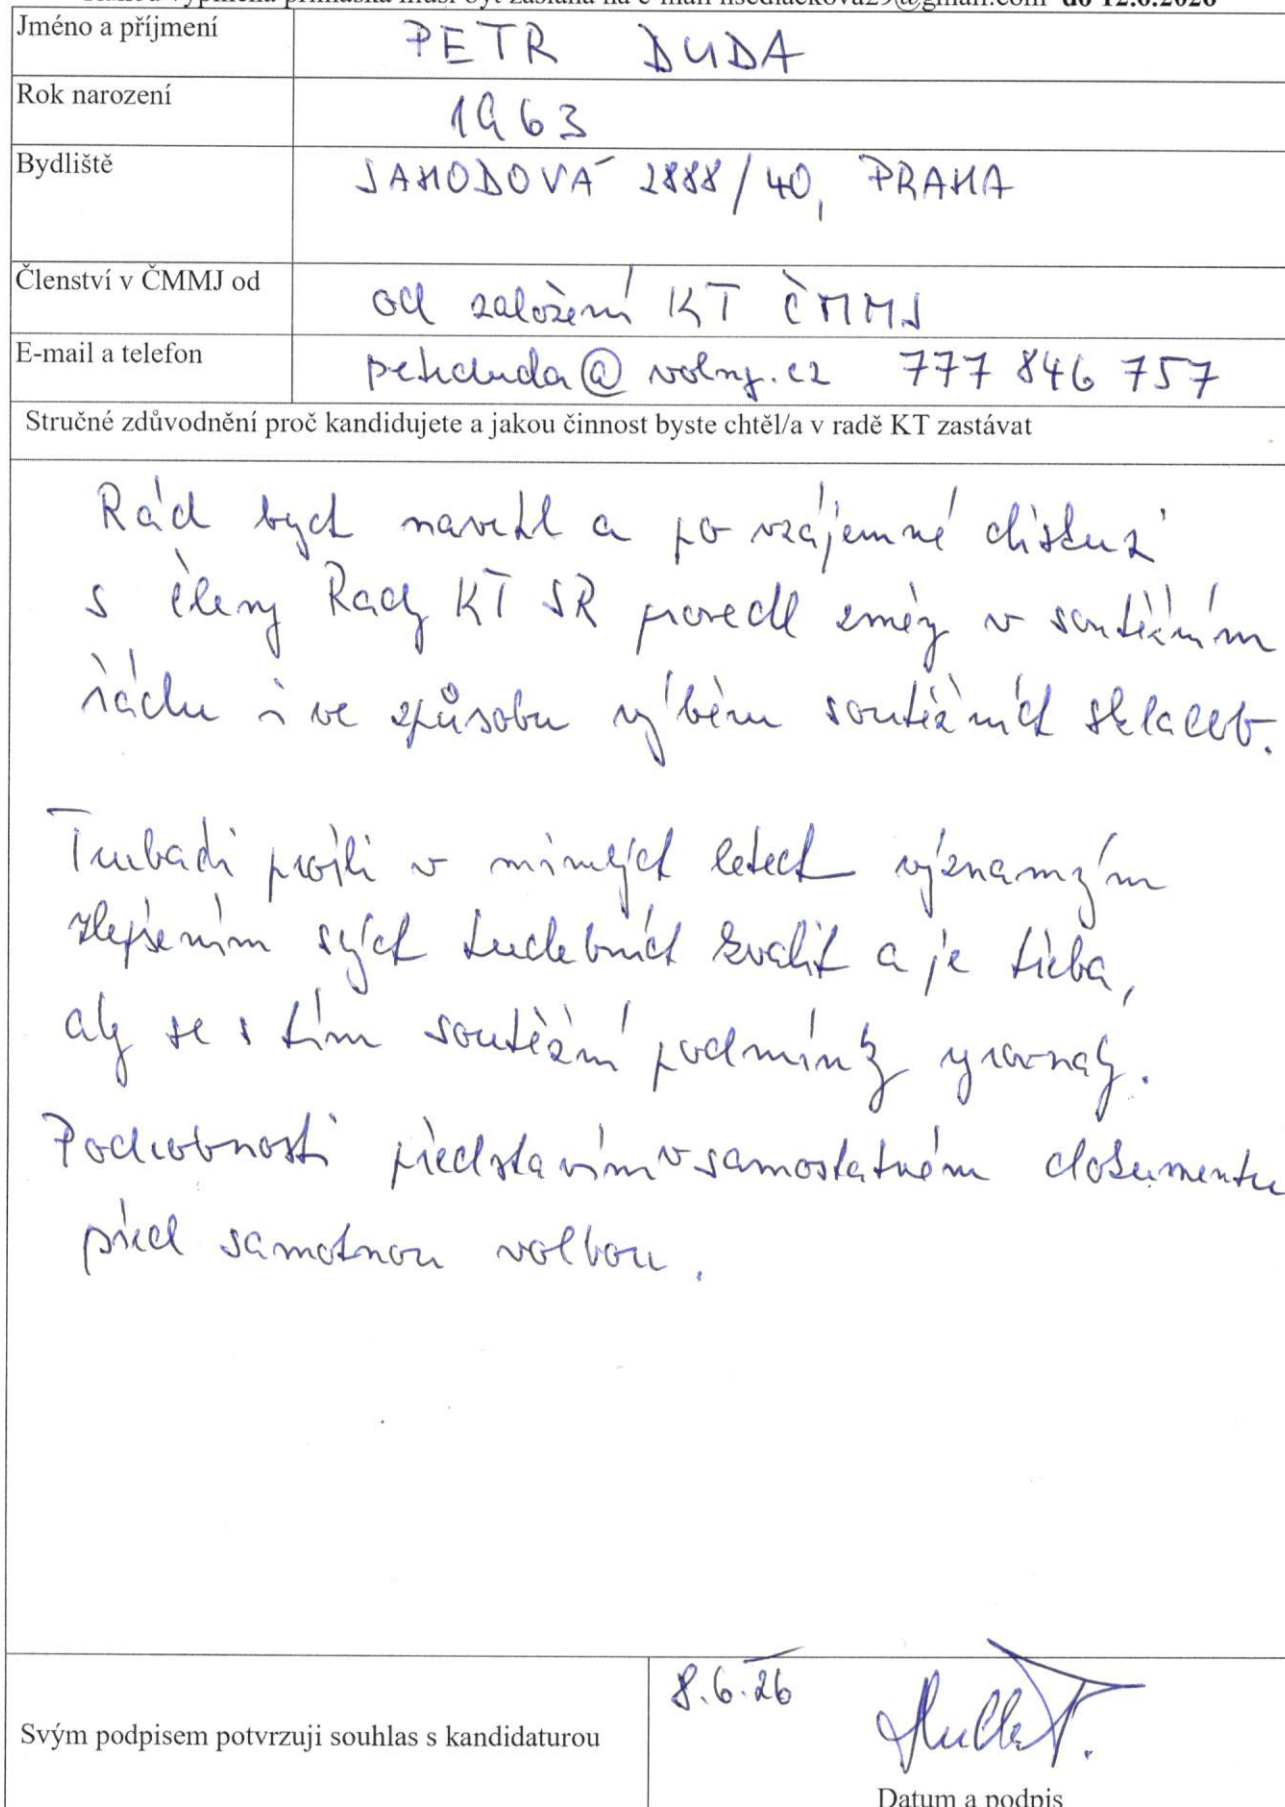 vyplněná přihláška musí být zaslána na e-mail lisedlackova29@gmail.com do 12.6.2026
Jméno a příjmení PETR DUDA
Rok narození 1963
Bydliště JAHODOVÁ 2888/40, PRAHA
Členství v ČMMJ od od založení KT ČMMJ
E-mail a telefon petrduda@volny.cz 777 846 757
Stručné zdůvodnění proč kandidujete a jakou činnost byste chtěl/a v radě KT zastávat
Rád bych navrhl a po vzájemné diskuzi
s členy Rady KT SR provedl změny v soutěžním
řádu i ve způsobu výběru soutěžních skladeb.
Trubači prošli v minulých letech významným
zlepšením svých hudebních kvalit a je třeba,
aby se s tím soutěžní podmínky vyrovnaly.
Podrobnosti představím v samostatném dokumentu
před samotnou volbou.
8.6.26
Svým podpisem potvrzuji souhlas s kandidaturou
Datum a podpis